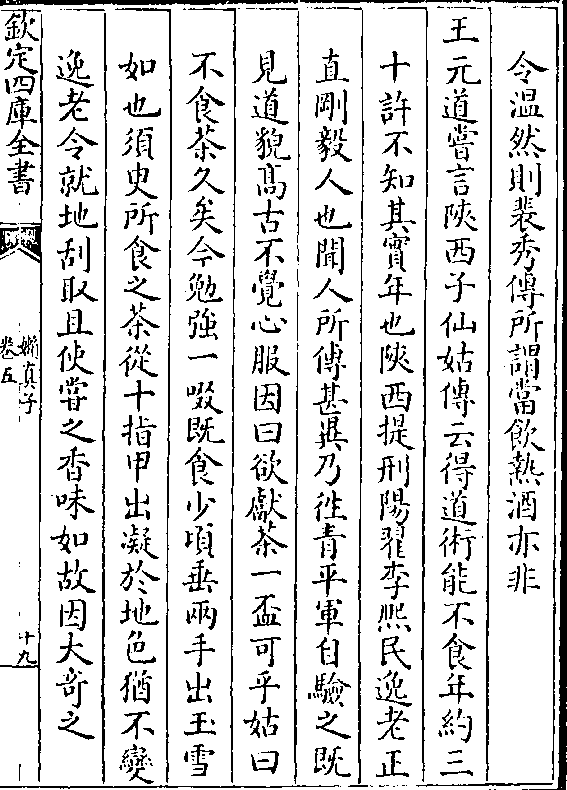 令溫然則裴秀傳所謂當飲熱酒亦非
王元道嘗言陜西子仙姑傳云得道術能不食年約三
十許不知其實年也陜西提刑陽翟李熙民逸老正
直剛毅人也聞人所傳甚異乃徃青平軍自驗之既
見道貌髙古不覺心服因曰欲獻茶一盃可乎姑曰
不食茶久矣今勉強一啜既食少頃垂兩手出玉雪
如也須臾所食之茶從十指甲出凝於地色猶不變
逸老令就地刮取且使嘗之香味如故因大奇之
欽定四庫全書
嬾真子
卷五
十九